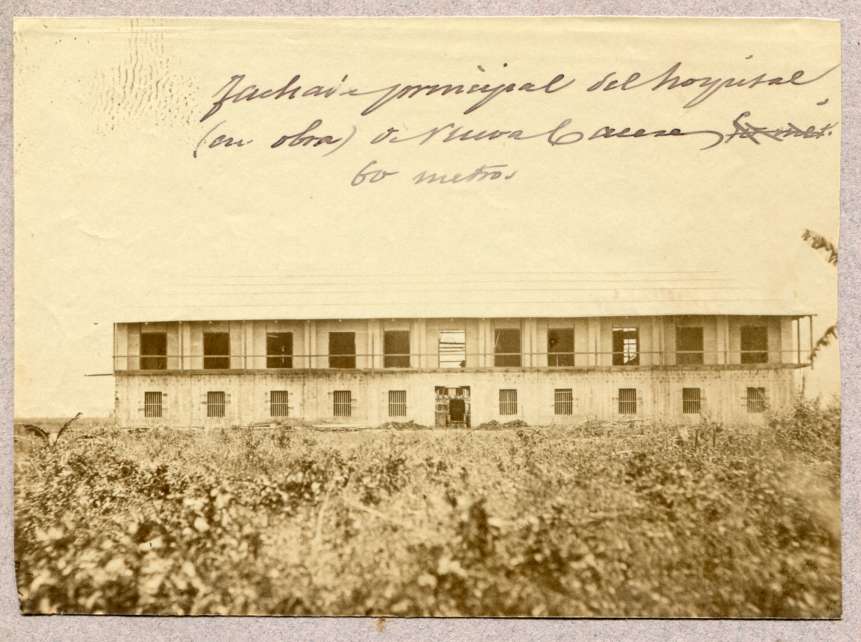 Fachada principal del hospital
(en obra) de Nueva Caceres
60 metros